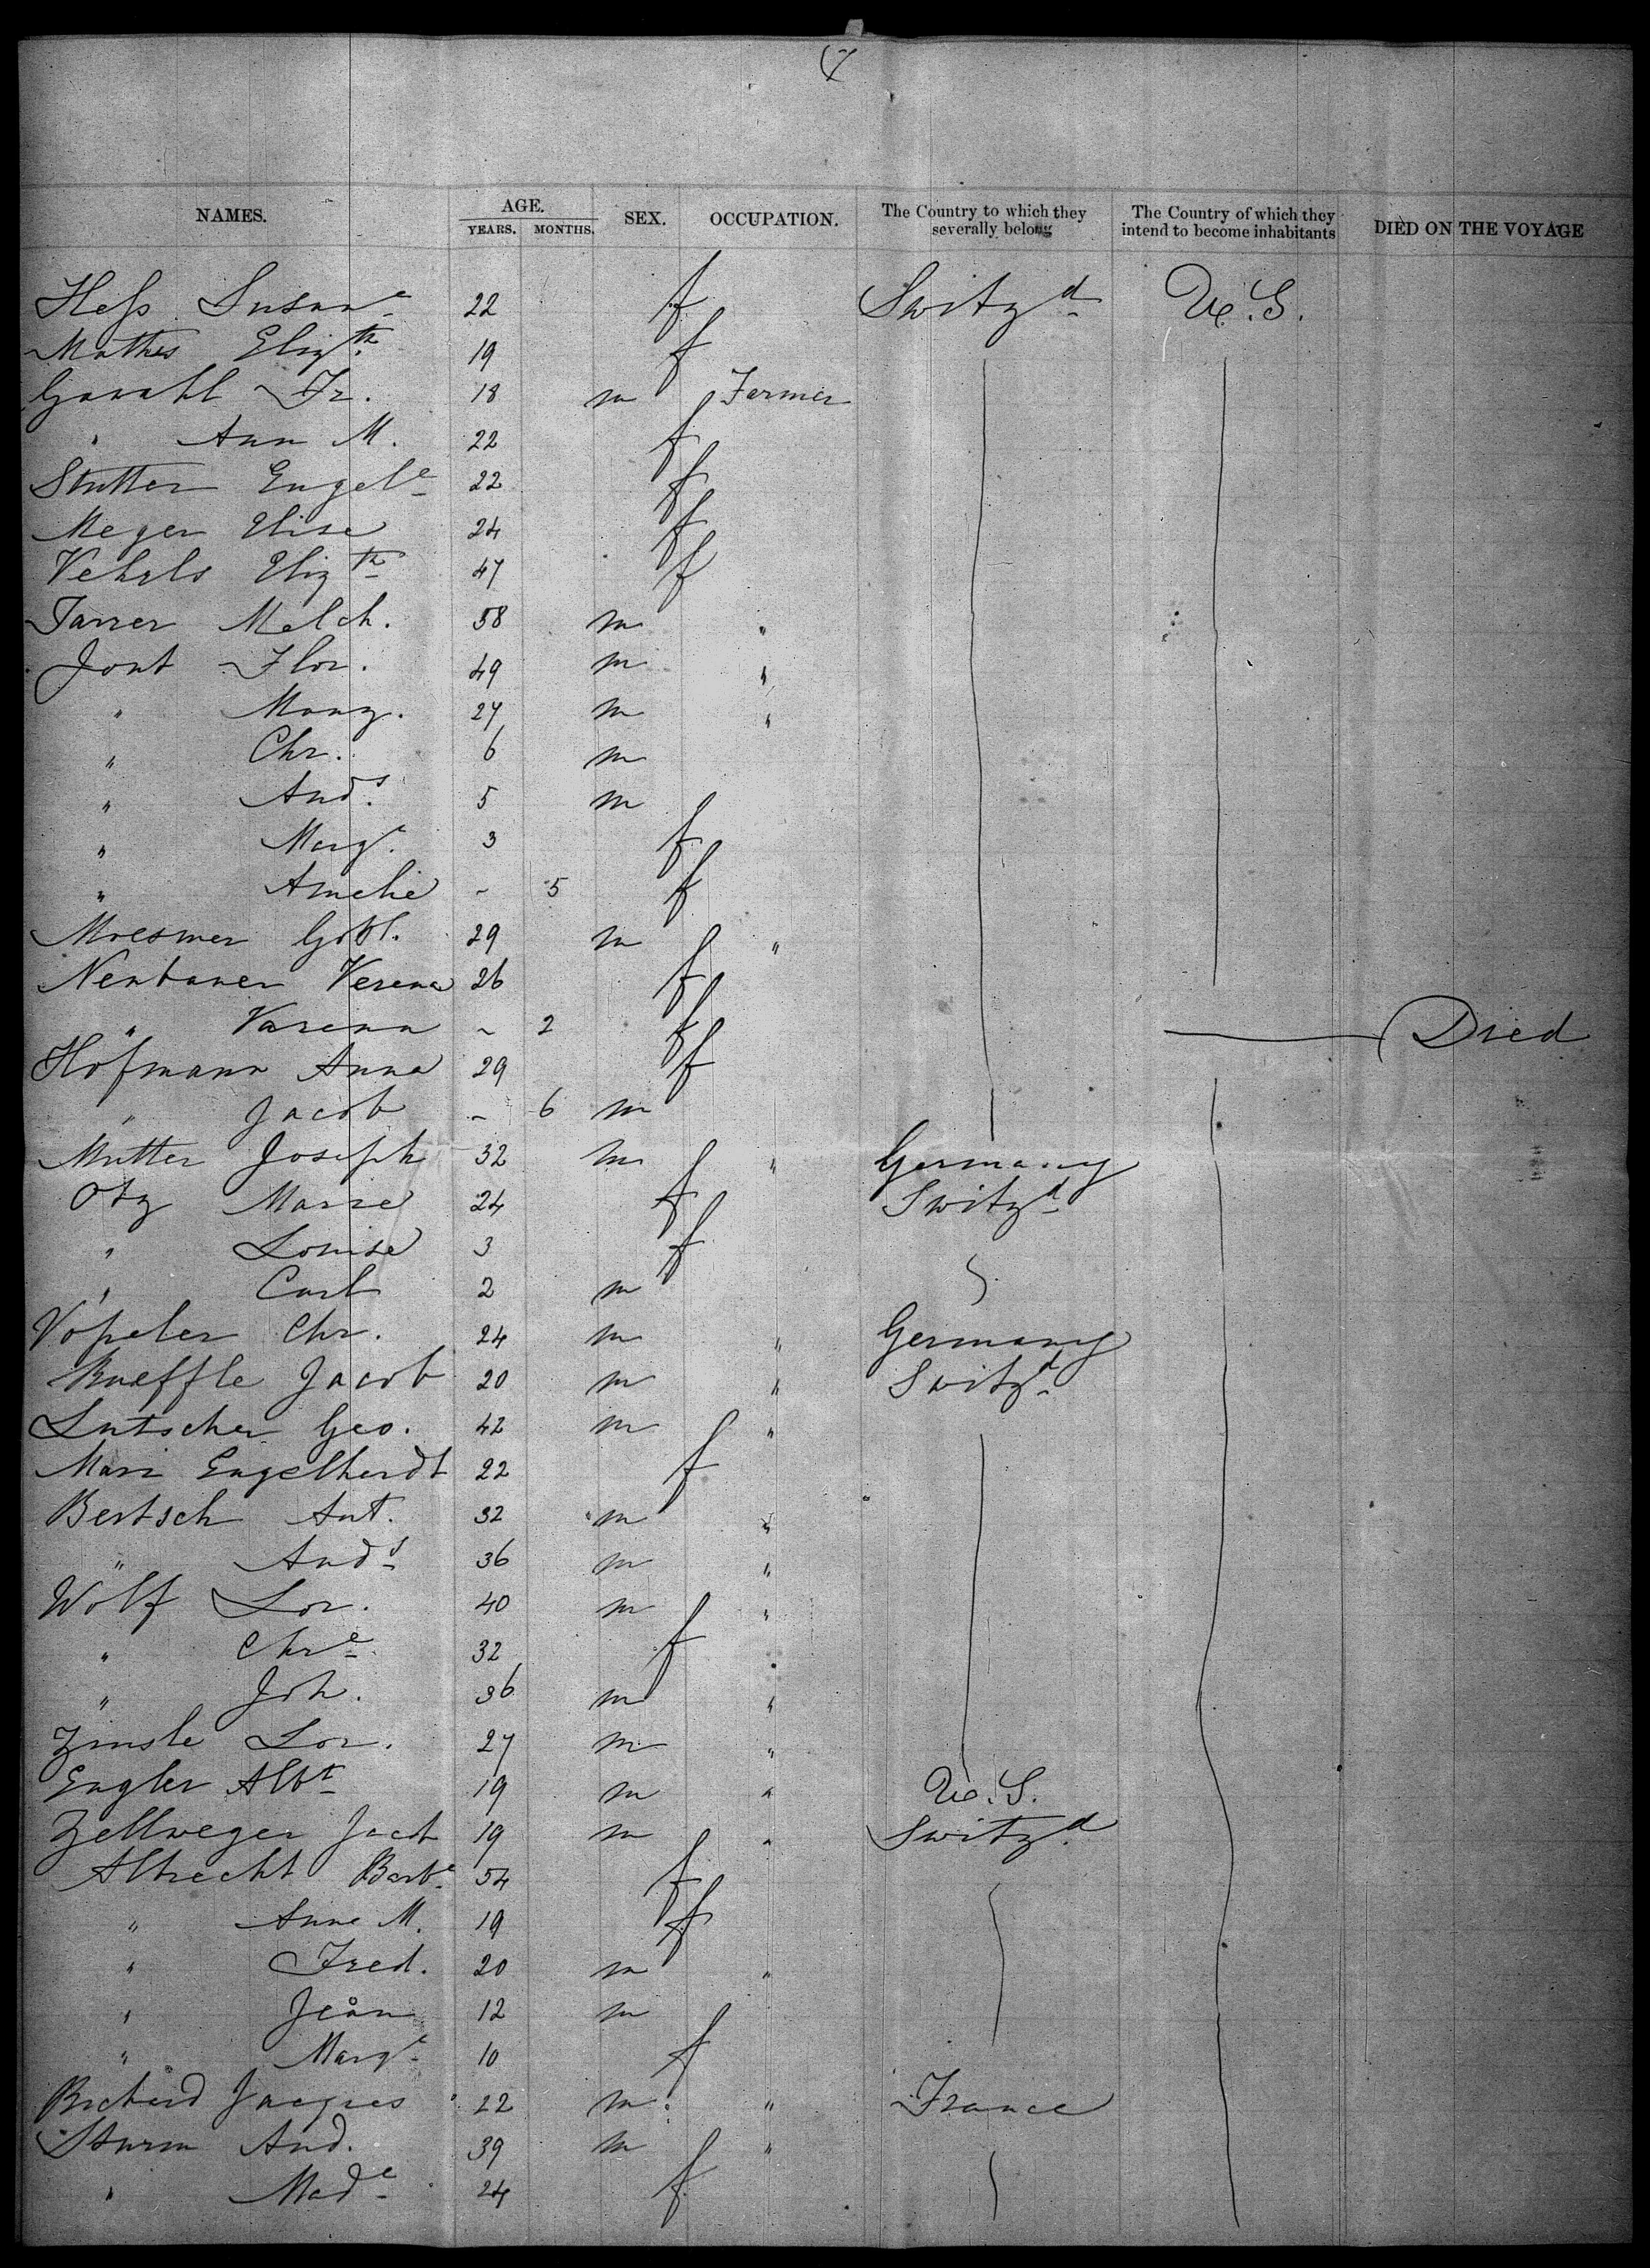 7
NAMES. AGE. YEARS. MONTHS. SEX. OCCUPATION. The Country to which they severally belong The Country of which they intend to become inhabitants DIED ON THE VOYAGE
Hess Susane 22 f Switzd U.S.
Mathes Elizth 19 f
Gavatt Fr. 18 m Farmer
" Ann M. 22 f
Stutter Engele 22 f
Meyer Elise 24 f
Vehrls Elizth 47 f
Farrer Melch. 58 m "
Jont Flor. 49 m "
" Marg. 27 m "
" Chr. 6 m
" Ands. 5 m
" Marge. 3 f
" Amelie - 5 f
Moesmer Gottl. 29 m "
Neubauer Verena 26 f
" Varena - 2 f Died
Hofmann Anna 29 f
" Jacob - 6 m
Mutter Joseph 32 m " Germany
Otz Marie 24 f Switzd
" Louise 3 f
" Carl 2 m
Vopeler Chr. 24 m " Germany
Kueffle Jacob 20 m " Switzd
Lutscher Geo. 42 m "
Mari Engelherdt 22 f
Bertsch Ant. 32 m "
" Ands 36 m "
Wolf Lor. 40 m "
" Chre 32 f
" Joh. 36 m "
Zinsle Lor. 27 m "
Engler Albt 19 m " U.S.
Zellweger Jacob 19 m " Switzd
Albrecht Barbe 54 f
" Anne M. 19 f
" Fred. 20 m "
" Jean 12 m
" Marge 10 f
Richard Jacques 22 m " France
Sturm And. 39 m "
" Made 24 f